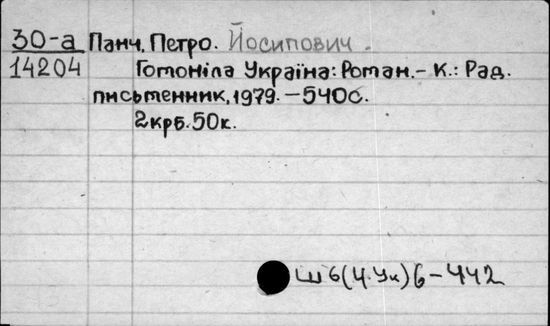 30-а Панч, Петро. Йосипович.
14204 Гомоніла Україна: Роман. - К.: Рад.
письменник, 1979. - 540с.
2крб. 50к.
Ш6(4.Ук)6-442